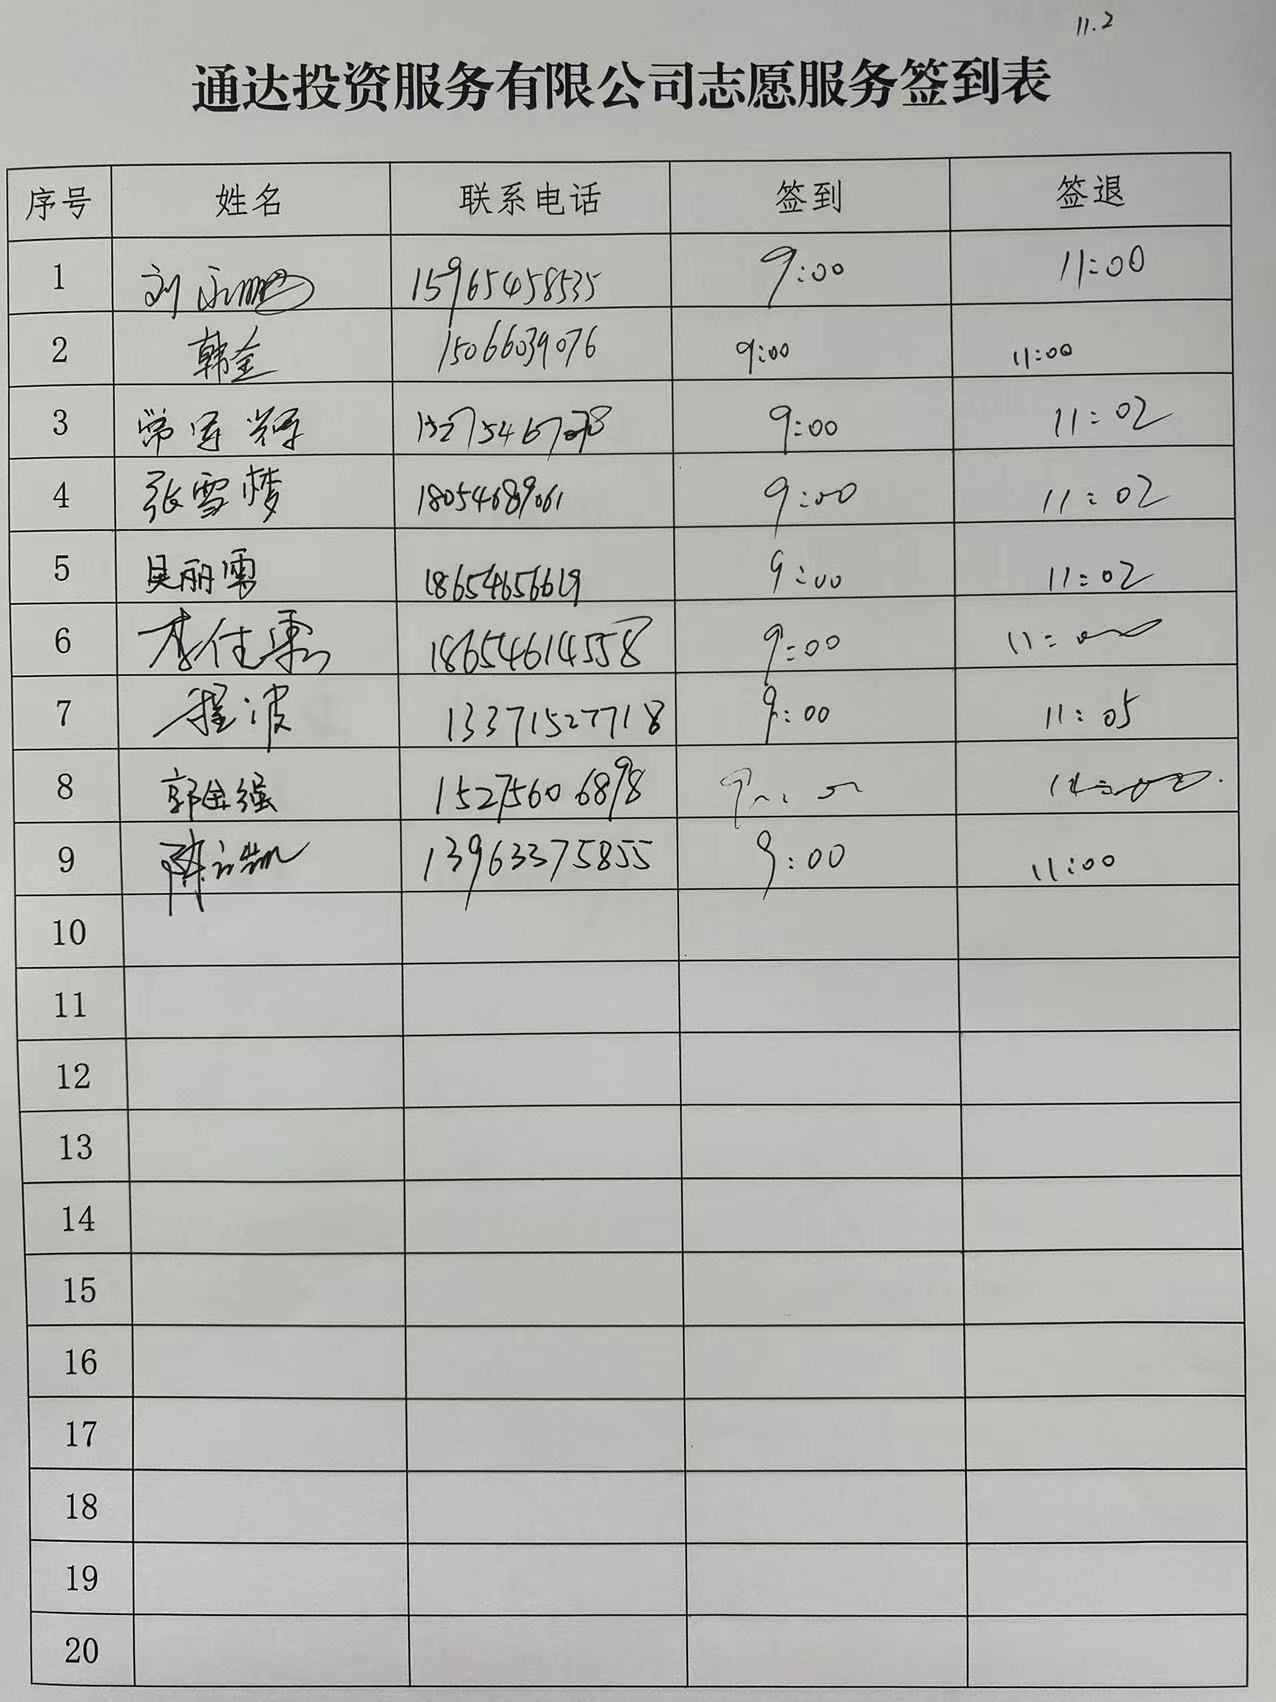 11.2
通达投资服务有限公司志愿服务签到表
序号 姓名 联系电话 签到 签退
1 刘永鹏 15965458535 9:00 11:00
2 韩金 15066039076 9:00 11:00
3 9:00 11:02
4 张雪梦 18054689061 9:00 11:02
5 吴丽雪 18654656619 9:00 11:02
6 18654614558 9:00 11:00
7 程波 13371527718 9:00 11:05
8 郭金强 15275606898
9 13963375855 9:00 11:00
10
11
12
13
14
15
16
17
18
19
20